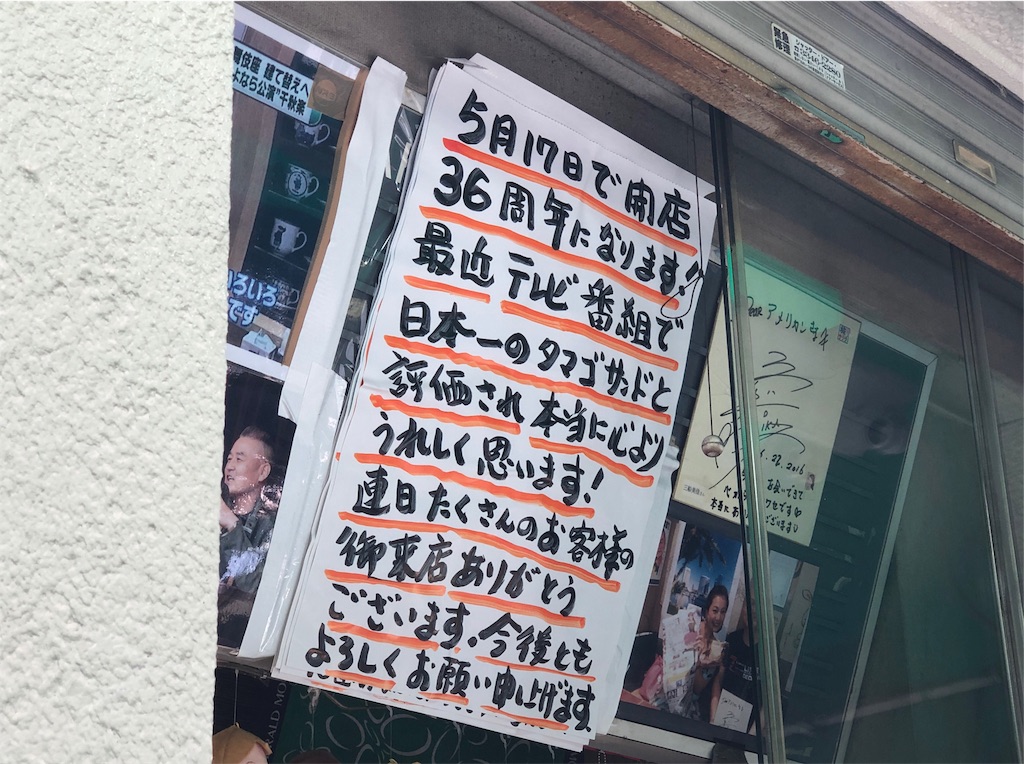 5月17日で開店
36周年になります!
最近テレビ番組で
日本一のタマゴサンドと
評価され本当に心より
うれしく思います!
連日たくさんのお客様の
御来店ありがとう
ございます。今後とも
よろしくお願い申し上げます。
舞伎座 建て替えへ
よなら公演"千秋楽
いろいろ
です
緊急
修理
アメリカン
2016
お会いできて
本当に
です♡
ございます♡
ALD MO